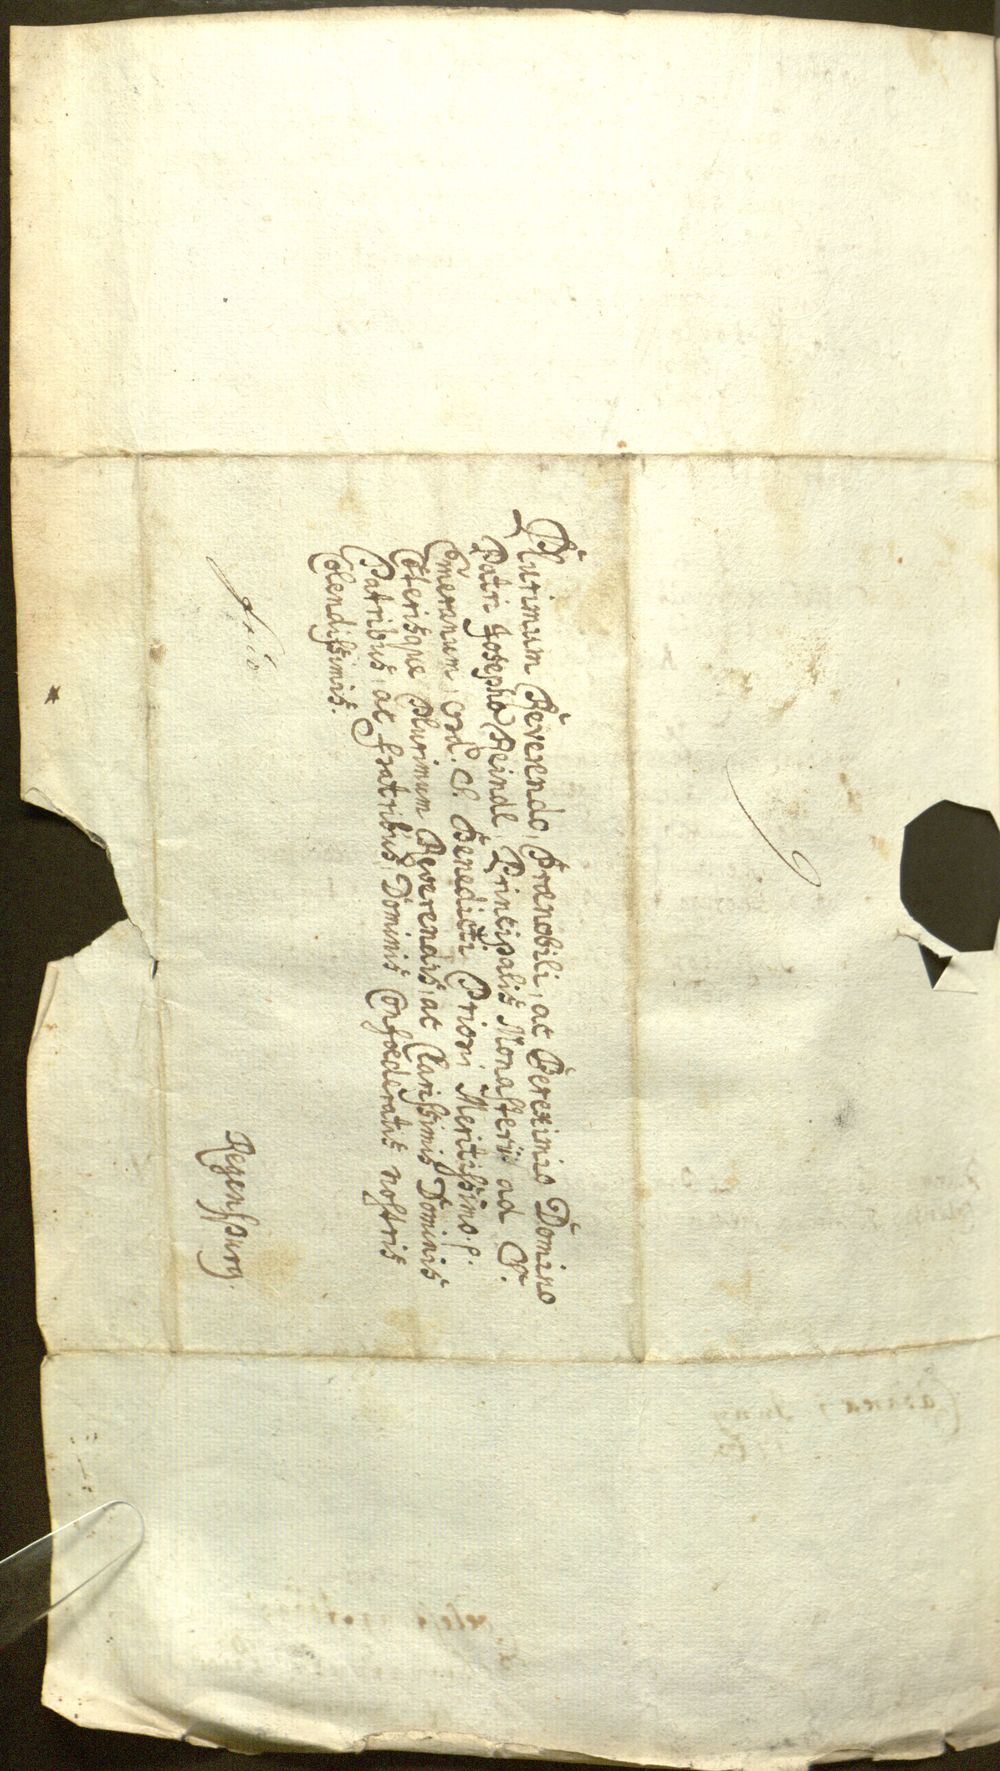 Plurimum Reverendo, Prænobili, ac Pereximio Domino
Patri Josepho Reindl Principalis Monasterii ad S.
Emeranum, Ord. S. Benedicti Priori Meritissimo. p.
Cæterisque Plurimum Reverendis, ac Clarissimis Dominis
Patribus, ac fratribus, Dominis Confœderatis nostris
Colendissimis.
Regenspurg.